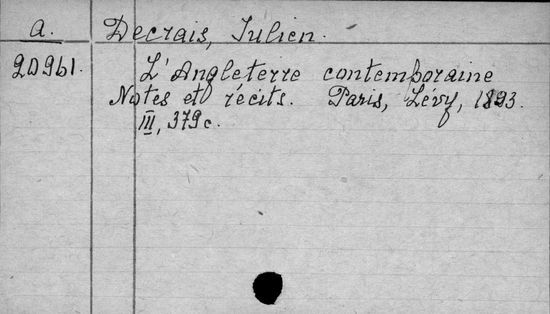 a. Decrais, Julien.
20961. L'Angleterre contemporaine
Notes et récits. Paris, Lévy, 1893.
III, 379 c.